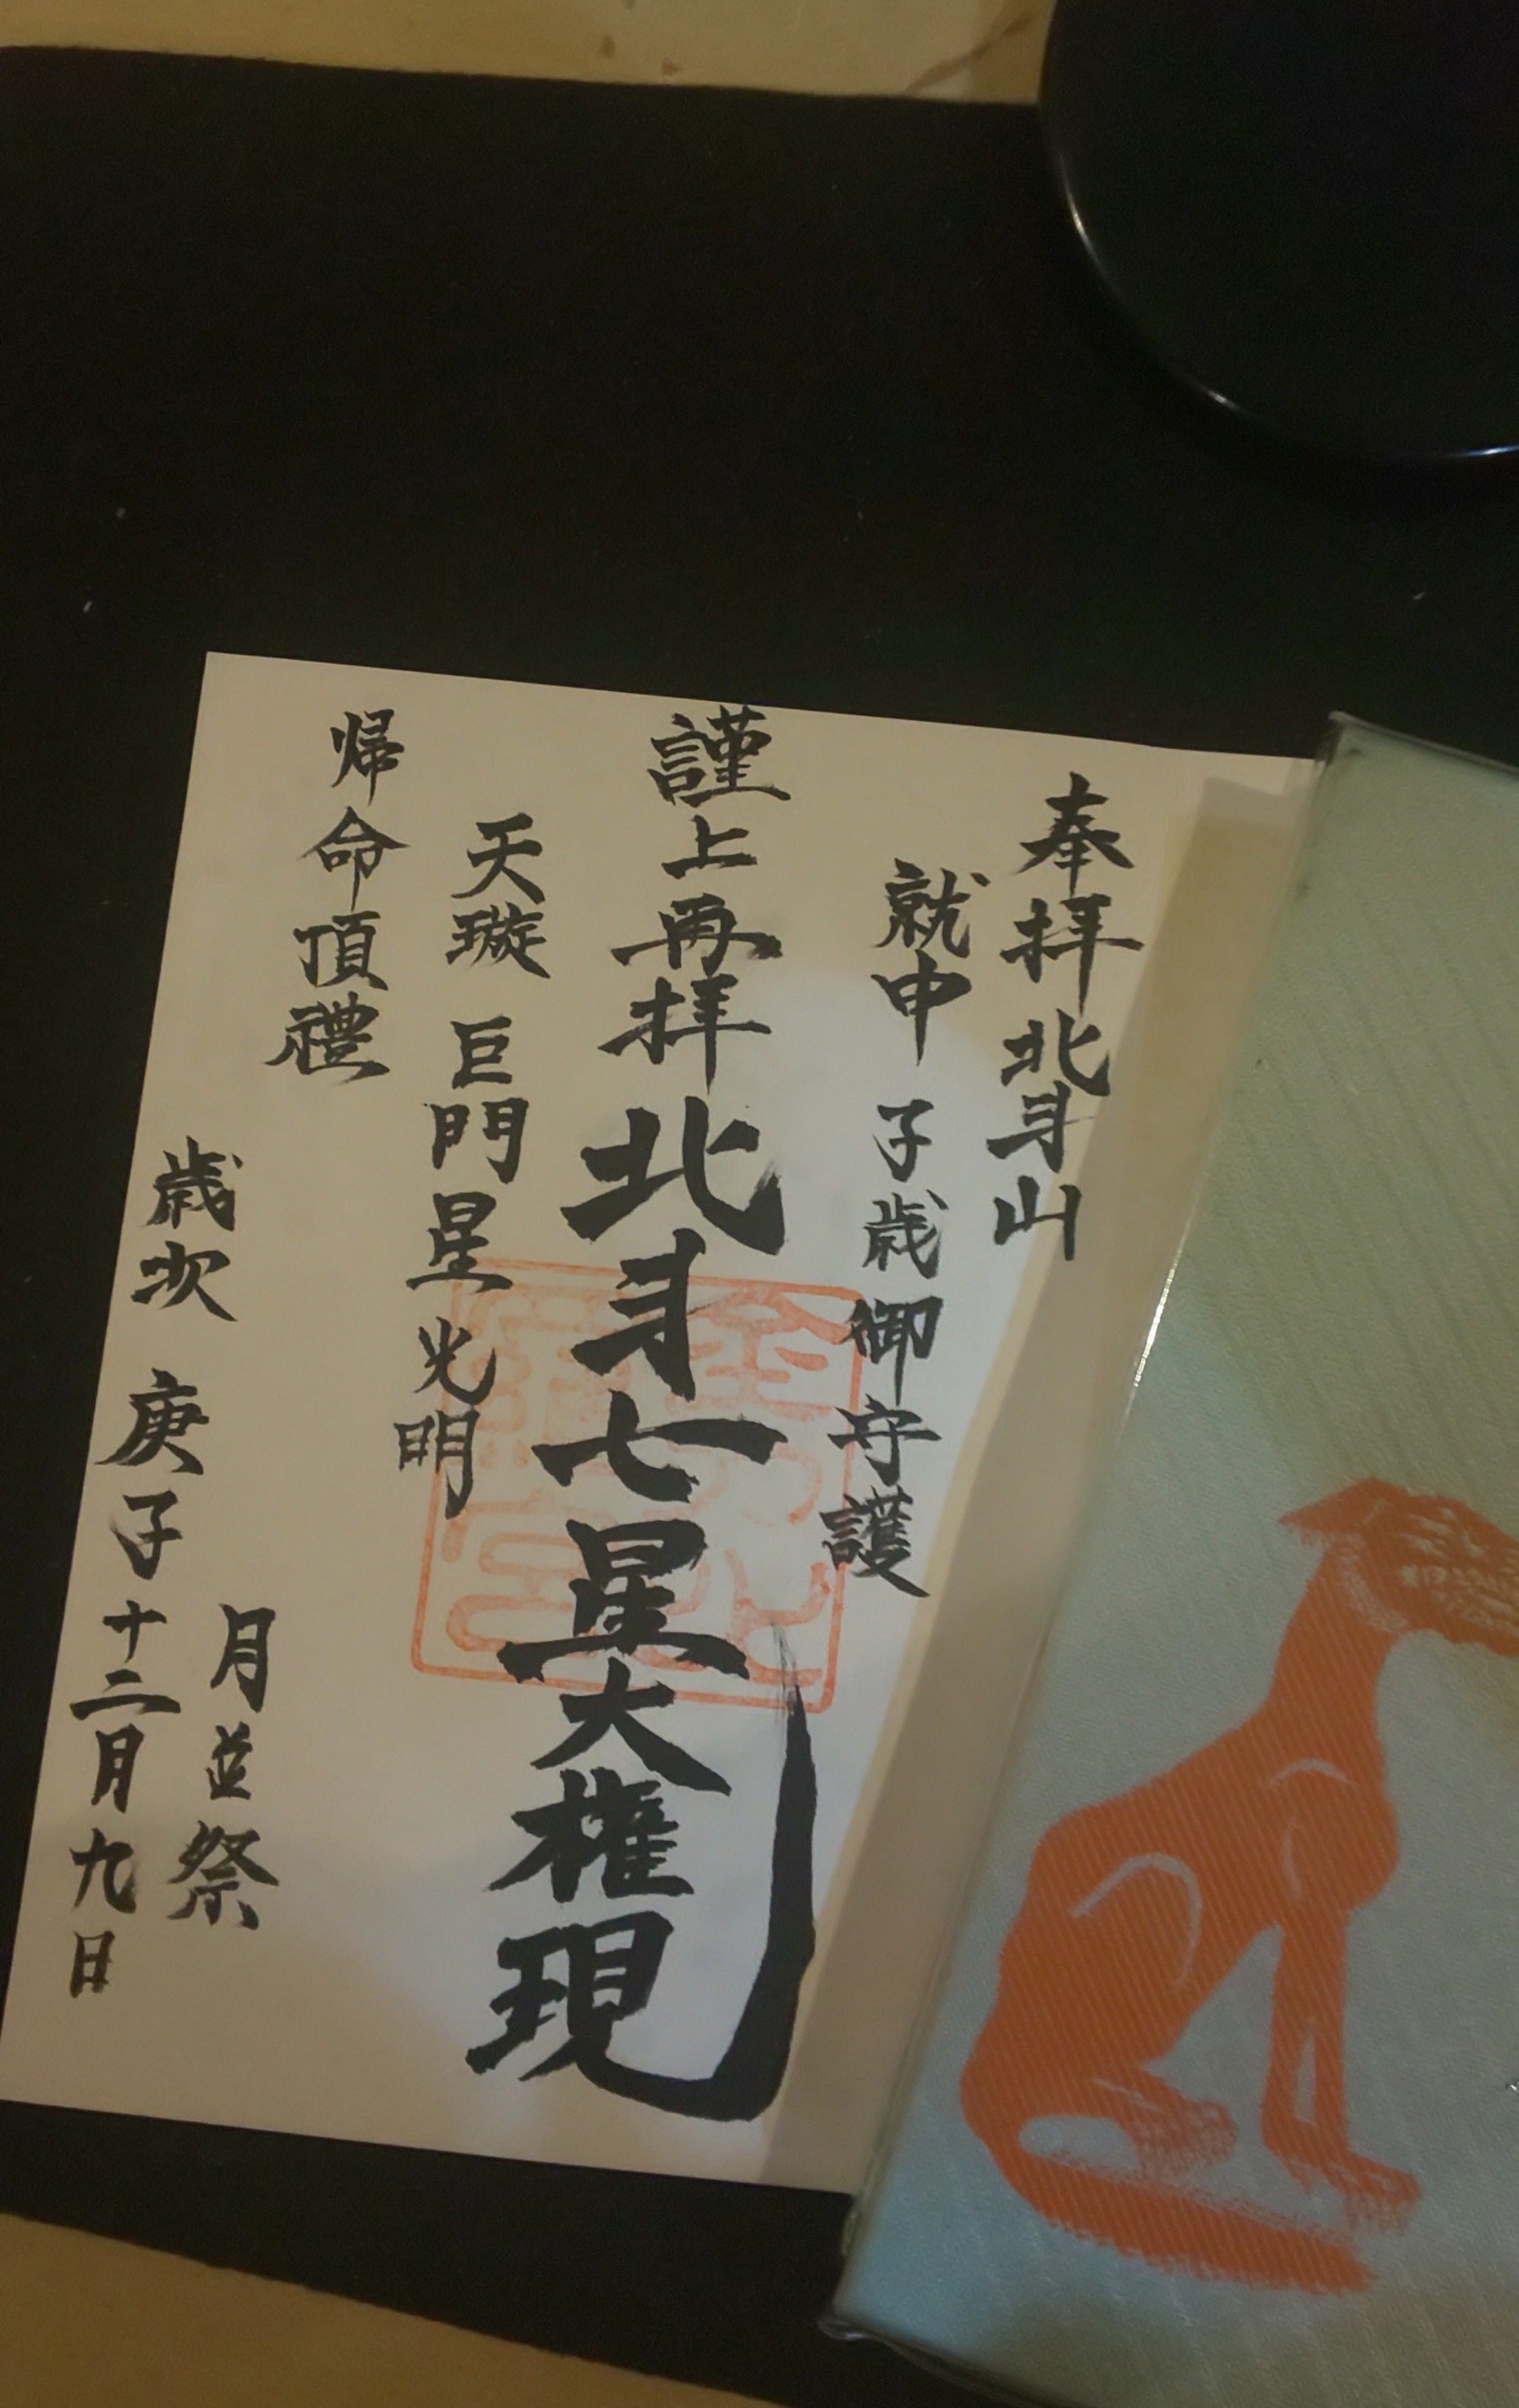 奉拝北斗山
就中 子歳御守護
謹上再拝 北斗七星大権現
天璇 巨門星光明
帰命頂禮
月並祭
歳次 庚子十二月九日